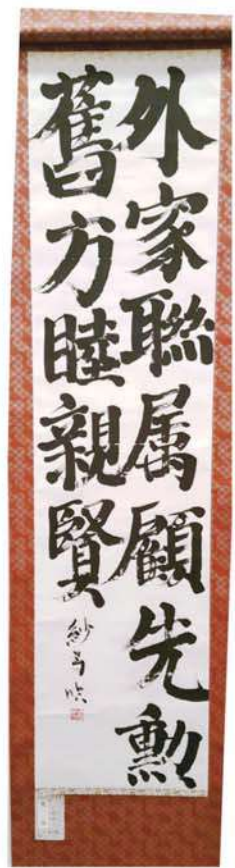 外家聯属顧先勲
舊方睦親賢